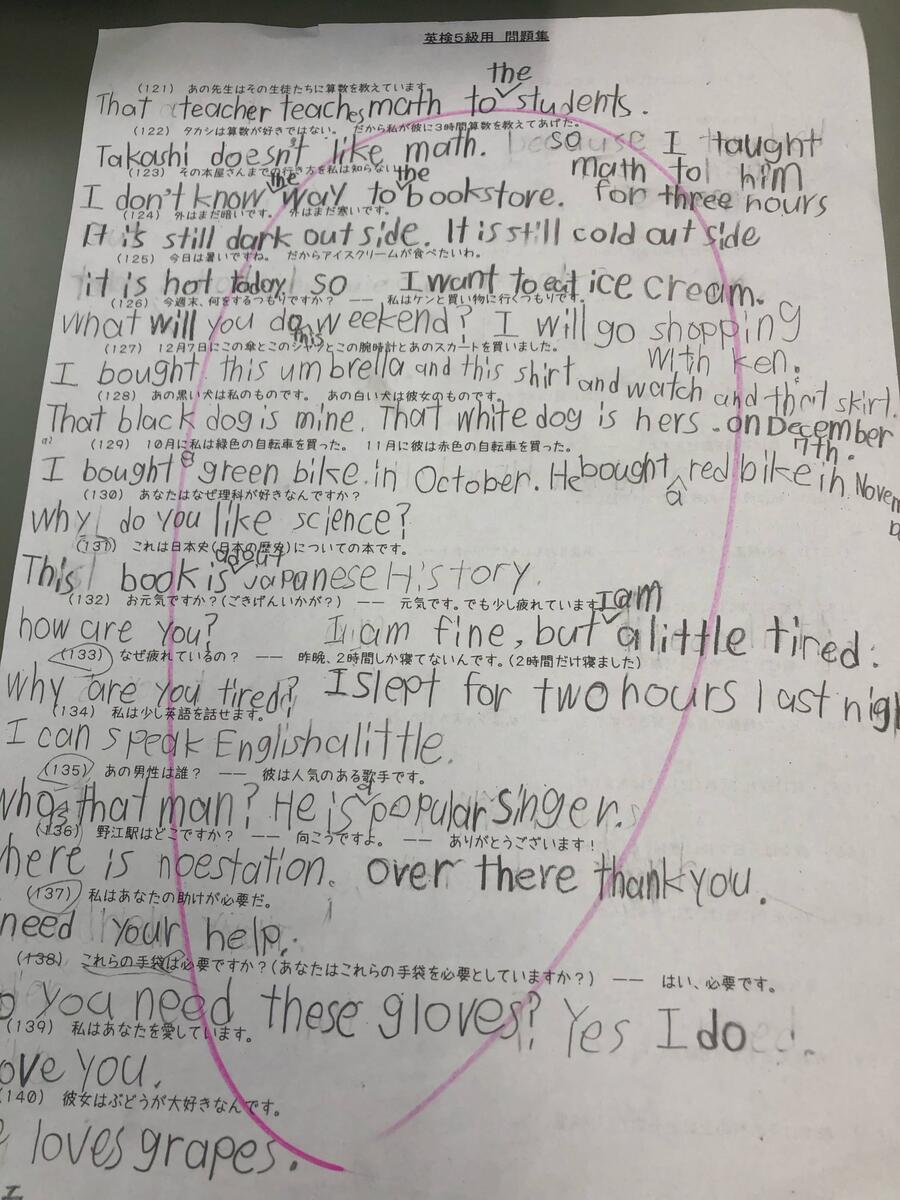 英検5級用 問題集
(121) あの先生はその生徒たちに算数を教えています。
the
That teacher teaches math to students.
(122) タカシは算数が好きではない。 だから私が彼に3時間算数を教えてあげた。
Takashi doesn't like math. so I taught
math to him
for three hours
(123) その本屋さんまでの行き方を私は知らない。
the the
I don't know way to bookstore.
(124) 外はまだ暗いです。 外はまだ寒いです。
It is still dark out side. It is still cold out side
(125) 今日は暑いですね。 だからアイスクリームが食べたいわ。
it is hot today so I want to eat ice cream.
(126) 今週末、何をするつもりですか? ―― 私はケンと買い物に行くつもりです。
what will you do weekend? I will go shopping
this
with ken.
(127) 12月7日にこの傘とこのシャツとこの腕時計とあのスカートを買いました。
I bought this umbrella and this shirt and watch and that skirt.
on December
7th.
(128) あの黒い犬は私のものです。 あの白い犬は彼女のものです。
That black dog is mine. That white dog is hers.
(129) 10月に私は緑色の自転車を買った。 11月に彼は赤色の自転車を買った。
a
I bought green bike in October. He bought red bike in Novem
a
(130) あなたはなぜ理科が好きなんですか?
why do you like science?
(131) これは日本史(日本の歴史)についての本です。
about
This book is Japanese History.
(132) お元気ですか?(ごきげんいかが?) ―― 元気です。でも少し疲れています。
I am
how are you? I am fine, but a little tired.
(133) なぜ疲れているの? ―― 昨晩、2時間しか寝てないんです。(2時間だけ寝ました)
why are you tired? I slept for two hours last nigh
(134) 私は少し英語を話せます。
I can speak English a little.
(135) あの男性は誰? ―― 彼は人気のある歌手です。
a
who is that man? He is popular singer.
(136) 野江駅はどこですか? ―― 向こうですよ。 ―― ありがとうございます!
here is noestation. over there thank you.
(137) 私はあなたの助けが必要だ。
need your help.
(138) これらの手袋は必要ですか?(あなたはこれらの手袋を必要としていますか?) ―― はい、必要です。
o you need these gloves? Yes I do.
(139) 私はあなたを愛しています。
ove you.
(140) 彼女はぶどうが大好きなんです。
e loves grapes.